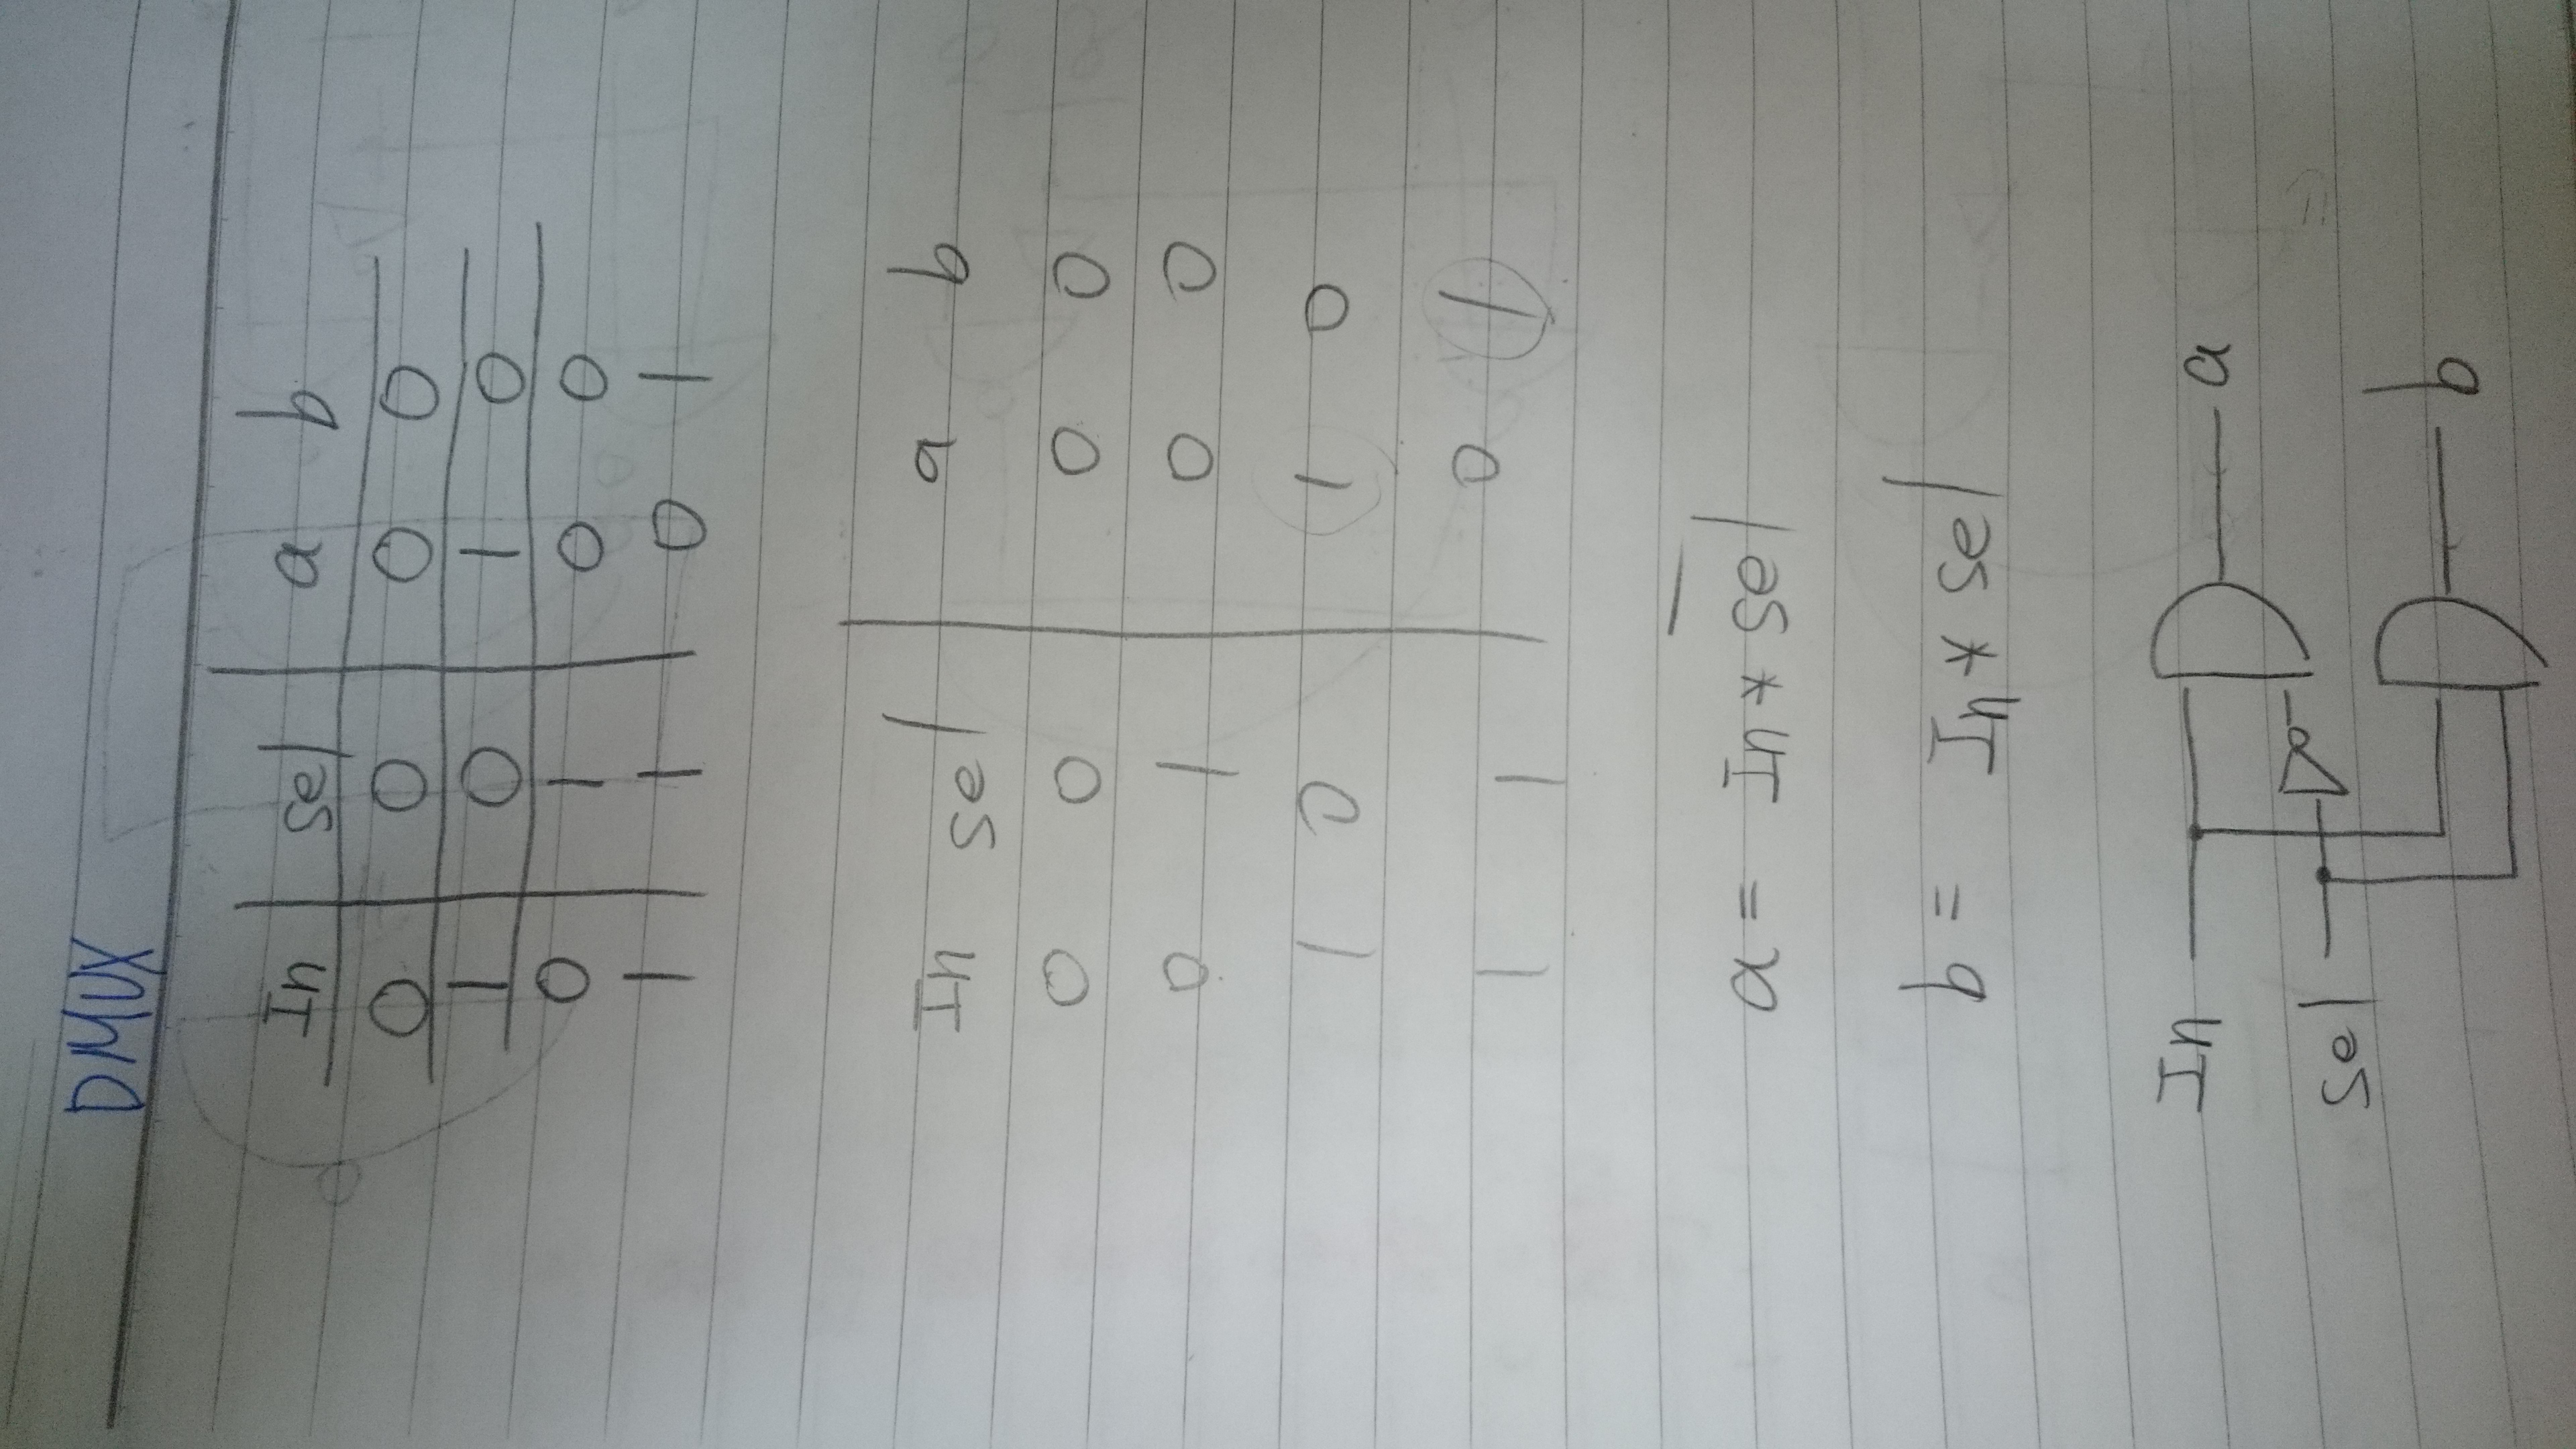 DMUX
In sel a b
0 0 0 0
1 0 1 0
0 1 0 0
1 1 0 1
In sel a b
0 0 0 0
0 1 0 0
1 0 1 0
1 1 0 1
a = In * s̅e̅l̅
b = In * sel
In a
sel b